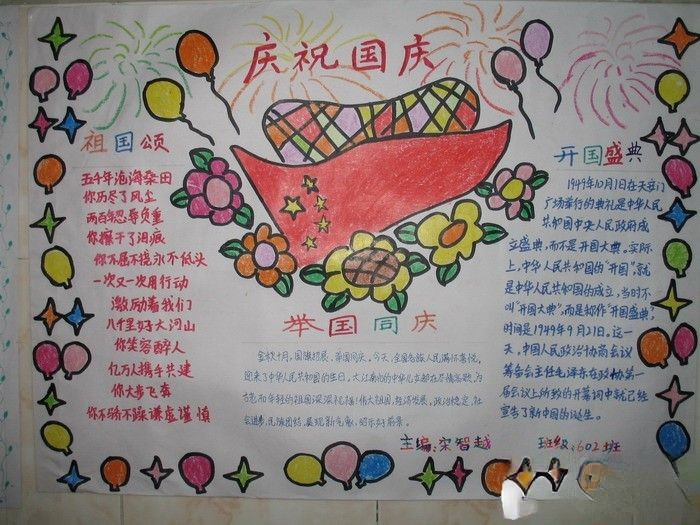 庆祝国庆
祖国颂
五千年沧海桑田
你历尽了风尘
两百年忍辱负重
你擦干了泪痕
你不屈不挠永不低头
一次又一次用行动
激励着我们
八千里好大河山
你笑容醉人
亿万人携手共建
你大步飞奔
你不骄不躁谦虚谨慎
举国同庆
金秋十月，国旗招展、举国同庆。今天，全国各族人民满怀喜悦，
迎来了中华人民共和国的生日。大江南北的中华儿女都在尽情高歌，为
古老而年轻的祖国深深礼福！伟大祖国，经济发展，政治稳定，社
会进步，民族团结，展现新气象，昭示好前景。
主编：宋智越
开国盛典
1949年10月1日在天安门
广场举行的典礼是中华人民
共和国中央人民政府成
立盛典，而不是开国大典。实际
上，中华人民共和国的“开国”，就
是中华人民共和国的成立，当时不
叫“开国大典”，而是称作“开国盛典”，
时间是1949年9月21日。这一
天，中国人民政治协商会议
筹备会主任毛泽东在政协第一
届会议上所致的开幕词中就已经
宣告了新中国的诞生。
班级：602班